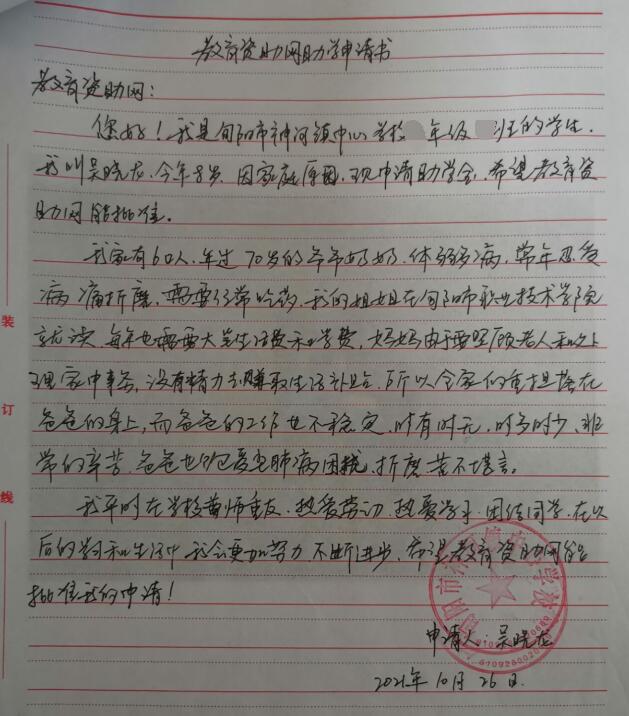 教育资助网助学申请书
教育资助网：
您好！我是旬阳市神河镇中心学校 年级 班的学生.
我叫吴晓龙.今年8岁.因家庭原因,现申请助学金,希望教育资
助网能批准。
我家有6口人.年过70岁的爷爷奶奶.体弱多病,常年忍受
病痛折磨,需要经常吃药.我的姐姐在旬阳市职业技术学院
就读,每年也需要大笔生活费和学费,妈妈由于要照顾老人和处
理家中事务,没有精力去赚取生活补贴.所以全家的重担落在
爸爸的身上,而爸爸的工作也不稳定.时有时无.时多时少.非
常的辛苦.爸爸也 受尘肺病困扰.折磨.苦不堪言。
我平时在学校尊师重友.热爱劳动.热爱学习.团结同学.在以
后的 和生活中我会更加努力.不断进步.希望教育资助网能
批准我的申请！
申请人:吴晓龙
2021年10月26日.
装
订
线